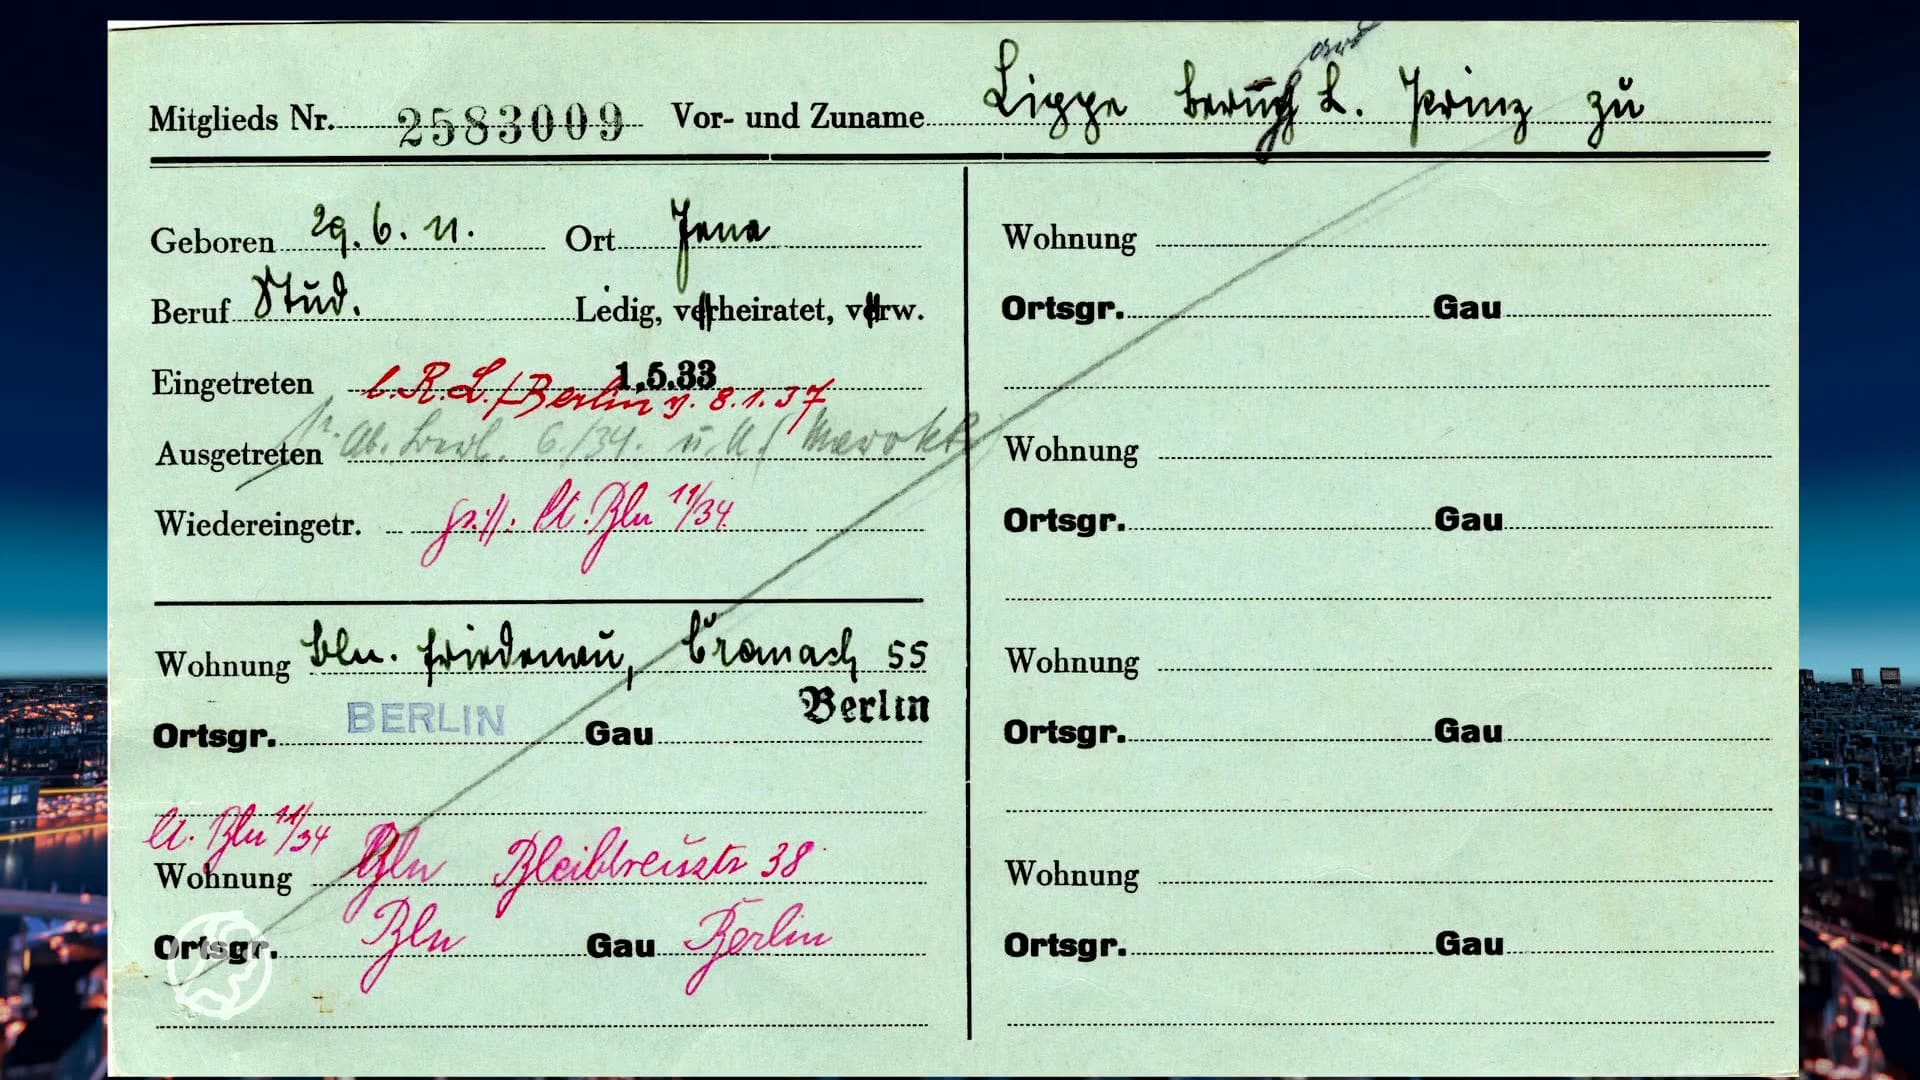 Mitglieds Nr. 2583009 Vor- und Zuname Lippe Bernh L. Prinz zu
Geboren 29.6.11. Ort Jena
Beruf Stud. Ledig, verheiratet, verw.
Eingetreten 1.5.33
l. R.L./Berlin v. 8.1.37
Ausgetreten 6/34. u.
Wiedereingetr. Bln 11/34
Wohnung Bln. Friedenau, Cranach 55
Ortsgr. BERLIN Gau Berlin
Bln 11/34
Wohnung Bln Bleibtreustr 38
Ortsgr. Bln Gau Berlin
Wohnung
Ortsgr. Gau
Wohnung
Ortsgr. Gau
Wohnung
Ortsgr. Gau
Wohnung
Ortsgr. Gau